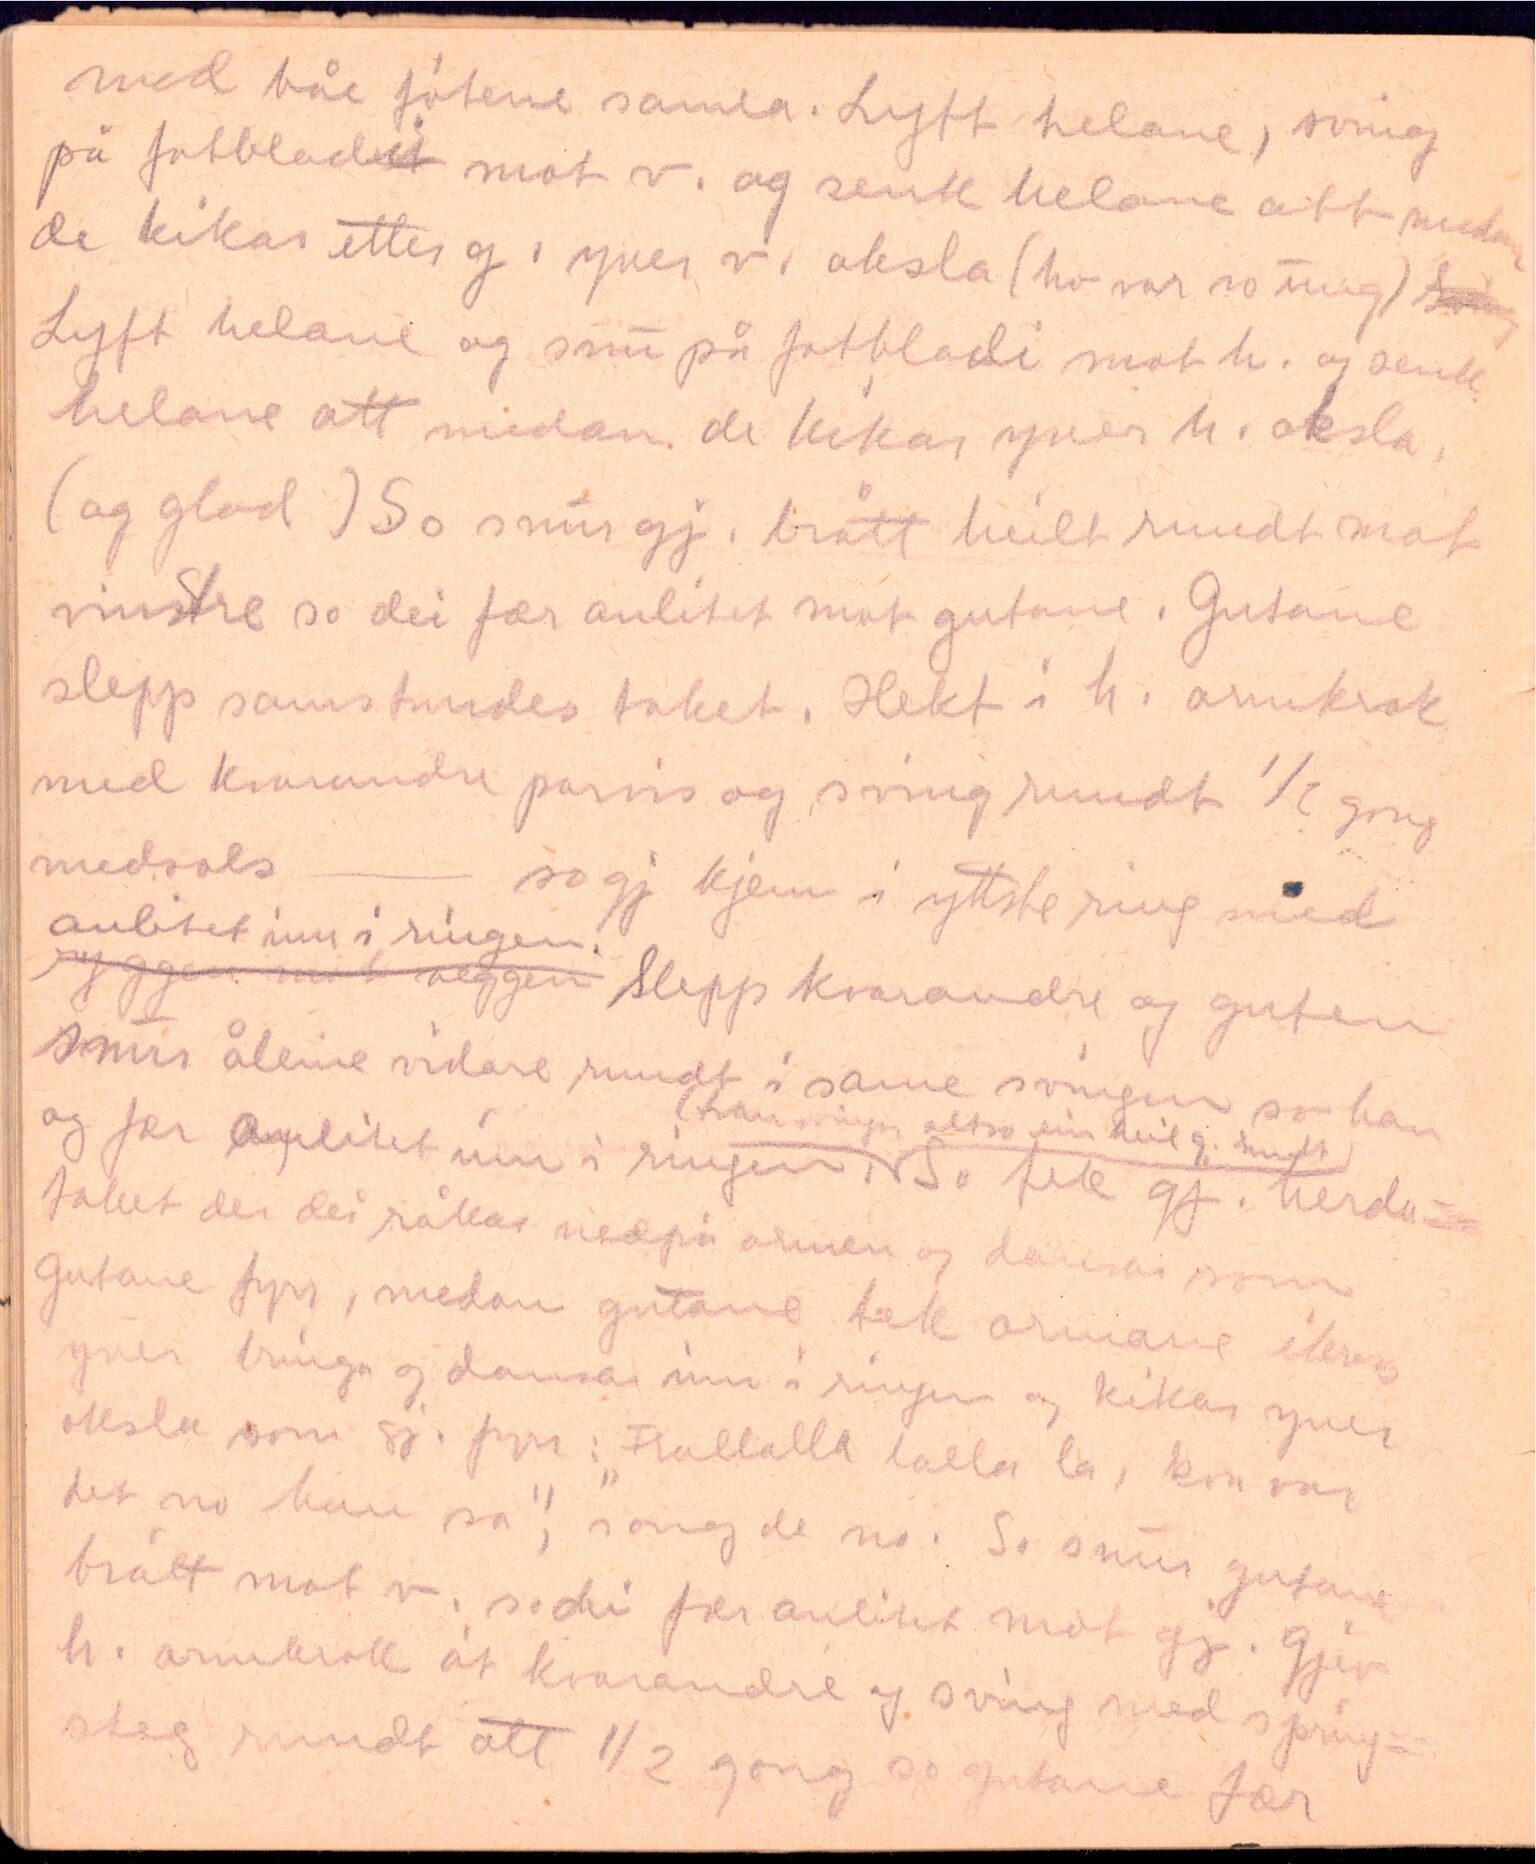 med båe føtene samla. Lyft helane, sving
på fotbladi mot v. og senk helane att medan
de kikar etter g. yver v. oksla (ho var so ung)
Lyft helane og snu på fotbladi mot h. og senk
helane att medan de kikar yver h. oksla.
(og glad) So snur gj. brått heilt rundt mot
vinstre so dei fær anlitet mot gutane. Gutane
slepp samstundes taket. Hekt i h. armkrok
med kvarandre parvis og sving rundt 1/2 gong
medsols — so gj kjem i ytste ring med
anlitet inn i ringen.
ryggen mot veggen Slepp kvarandre og guten
snur åleine vidare rundt i same svingen so han
(han svinger altso ein heil g. rundt)
og fær anlitet inn i ringen. So tek gj. herda-
taket der dei råkar nedpå armen og dansar som
Gutane fyrr, medan gutane tek armane ikross
yver bringa og dansar inn i ringen og kikar yver
oksla som gj. fyrr: Trallalla lalla la, kva var
det no han sa", "song de no. So snur gutane
brått mot v. so dei fær anlitet mot gj. Gjev
h. armkrok åt kvarandre og sving med spring-
steg rundt att 1/2 gong so gutane fær